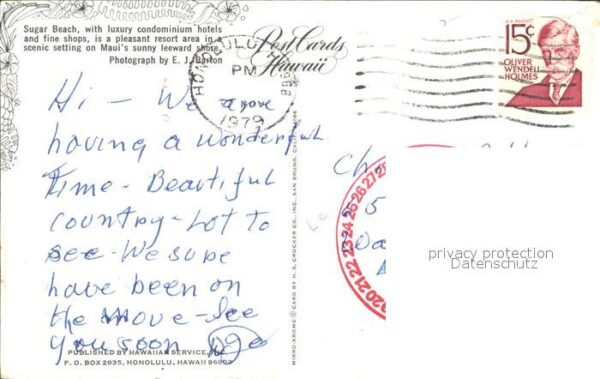 Sugar Beach, with luxury condominium hotels
and fine shops, is a pleasant resort area in a
scenic setting on Maui's sunny leeward shore.
Photograph by E. J. Barton
Post Cards
Hawaii
HONOLULU
PM
NOV
1979
15c
OLIVER
WENDELL
HOLMES
Hi - We are
having a wonderful
time - Beautiful
country - Lot to
see - We sure
have been on
the move - See
you soon
PUBLISHED BY HAWAIIAN SERVICE, INC.
P. O. BOX 2835, HONOLULU, HAWAII 96803
MIRRO-KROME ® CARD BY H. S. CROCKER CO., INC., SAN BRUNO, CALIF.
Ch
5
20 21 22 23 24 25 26 27
privacy protection
Datenschutz